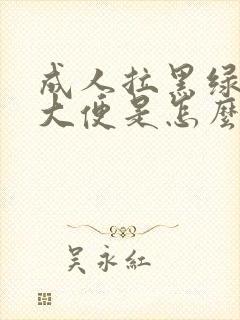 成人拉黑绿
大便是怎麼
吴永紅